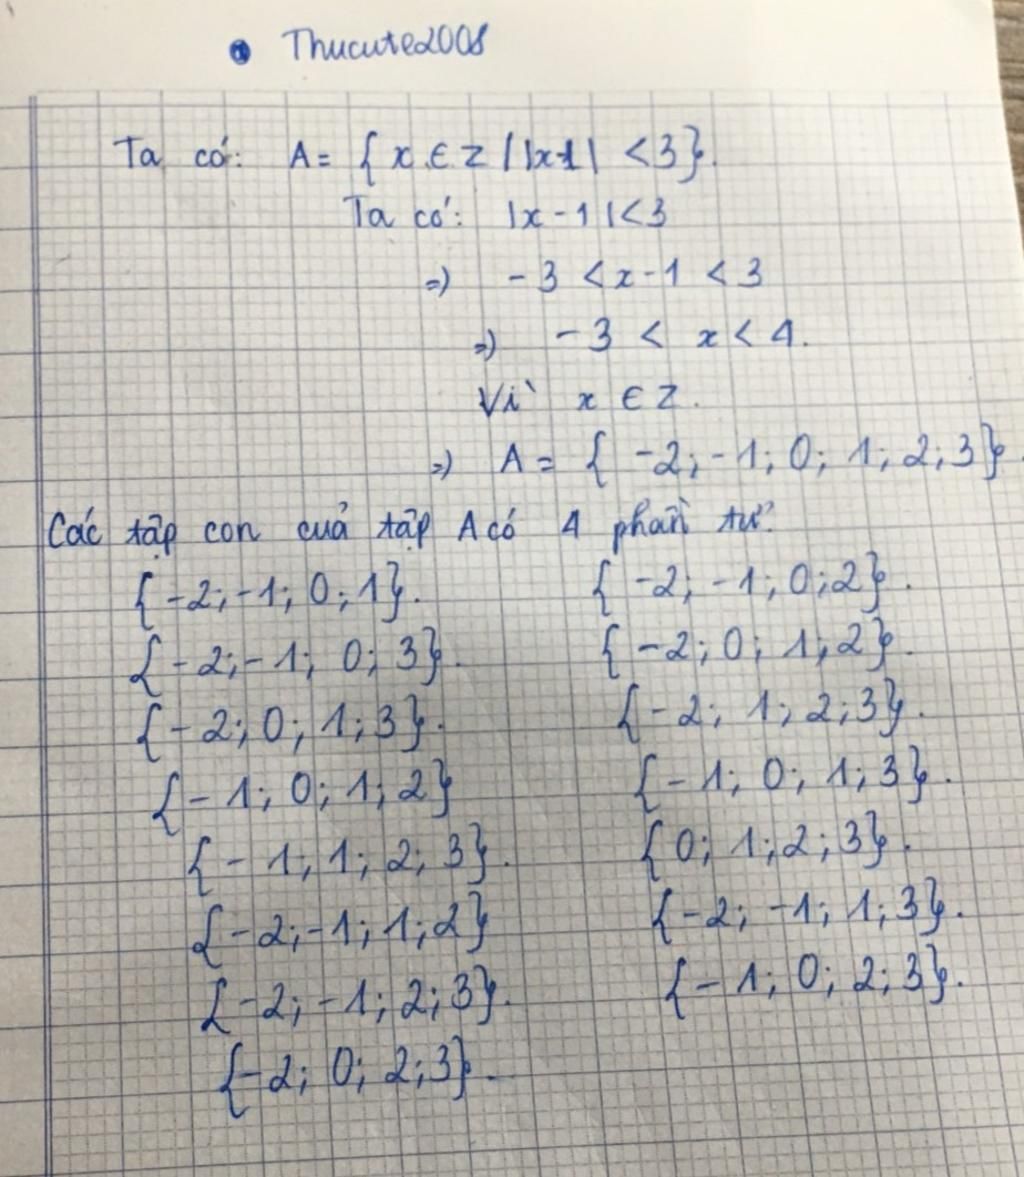 Thucute2008
Ta có: A = { x ∈ Z | |x-1| < 3}.
Ta có: |x - 1| < 3
=) - 3 < x - 1 < 3
=) - 3 < x < 4.
Vì x ∈ Z.
=) A = { -2; -1; 0; 1; 2; 3}.
Các tập con cuả tập A có 4 phần tử:
{ -2; -1; 0; 1}. { -2; -1; 0; 2}.
{ -2; -1; 0; 3}. { -2; 0; 1; 2}.
{ -2; 0; 1; 3}. { -2; 1; 2; 3}.
{ - 1; 0; 1; 2} { - 1; 0; 1; 3}.
{ - 1; 1; 2; 3}. { 0; 1; 2; 3}.
{ -2; -1; 1; 2} { -2; -1; 1; 3}.
{ -2; -1; 2; 3}. { - 1; 0; 2; 3}.
{ -2; 0; 2; 3}.